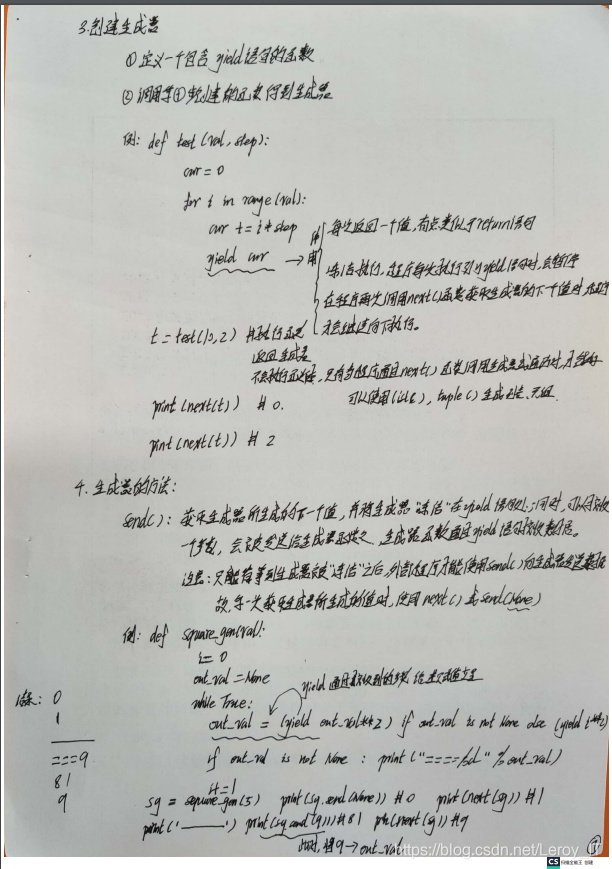 3.创建生成器
① 定义一个包含yield语句的函数
② 调用第①步创建的函数得到生成器
例: def test (val, step):
cur = 0
for i in range(val):
cur t= i*step
yield cur → 作用
每次返回一个值,有点类似于return语句
冻结执行,程序每次执行到yield语句时,会暂停
在程序再次调用next()函数获取生成器的下一个值时,程序
才会继续向下执行。
t = test(10,2) #执行函数
返回生成器
不会执行函数体,只有当程序通过next()函数调用生成器或遍历时,才会执行
可以使用list(), tuple() 生成列表、元组
print(next(t)) # 0.
print(next(t)) # 2
4. 生成器的方法:
send(): 获取生成器所生成的下一个值,并将生成器“冻结”在yield语句处;同时,可以接收
一个参数,会被发送给生成器函数,生成器函数通过yield语句接收数据。
注意:只能等到生成器被“冻结”之后,外部程序才能使用send()向生成器发送数据
故,第一次获取生成器所生成的值时,使用next()或send(None)
例: def square_gen(val):
i= 0
out_val = None
while True:
yield 通过接收到的
out_val = (yield out_val**2) if out_val is not None else (yield i**2)
if out_val is not None : print("====%d" % out_val)
i+=1
sg = square_gen(5) print(sg.send(None)) # 0 print(next(sg)) # 1
print('———') print(sg.send(9)) # 81 print(next(sg)) # 9
此时,将9→out_val
结果: 0
1
———
===9
81
9
https://blog.csdn.net/Leroy_
CS 扫描全能王 创建